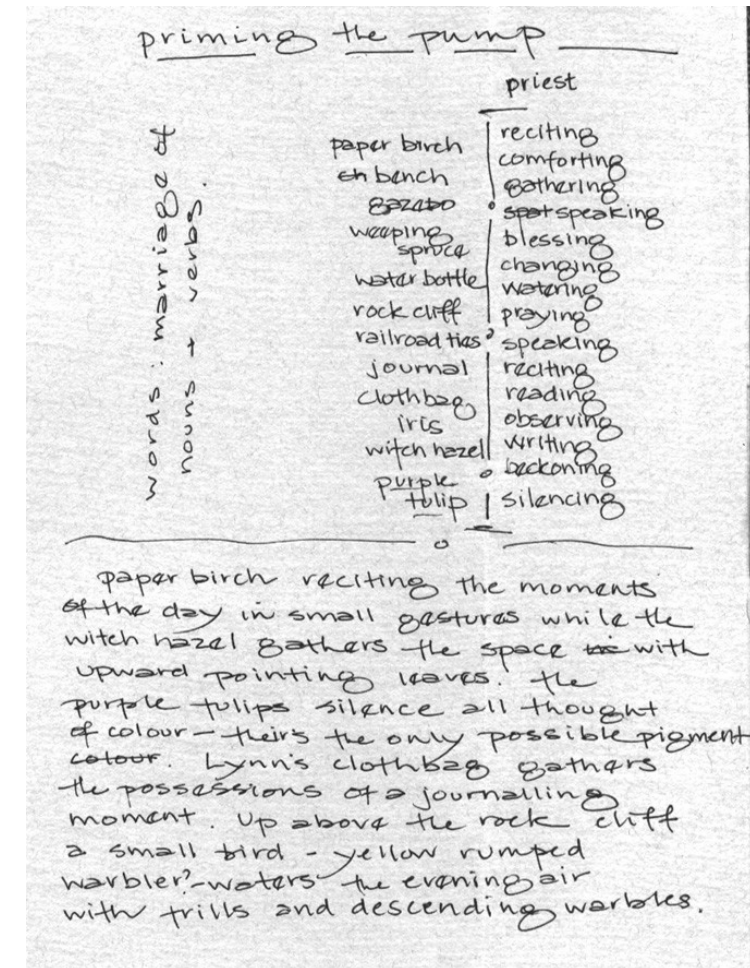 priming the pump
priest
words: marriage of
nouns + verbs.
paper birch
bench
gazebo
weeping
spruce
water bottle
rock cliff
railroad ties
journal
cloth bag
iris
witch hazel
purple
tulip
reciting
comforting
gathering
speaking
blessing
changing
watering
praying
speaking
reciting
reading
observing
writing
beckoning
silencing
paper birch reciting the moments
of the day in small gestures while the
witch hazel gathers the space with
upward pointing leaves. the
purple tulips silence all thought
of colour - their's the only possible pigment
colour. Lynn's clothbag gathers
the possessions of a journalling
moment. Up above the rock cliff
a small bird - yellow rumped
warbler? - waters the evening air
with trills and descending warbles.